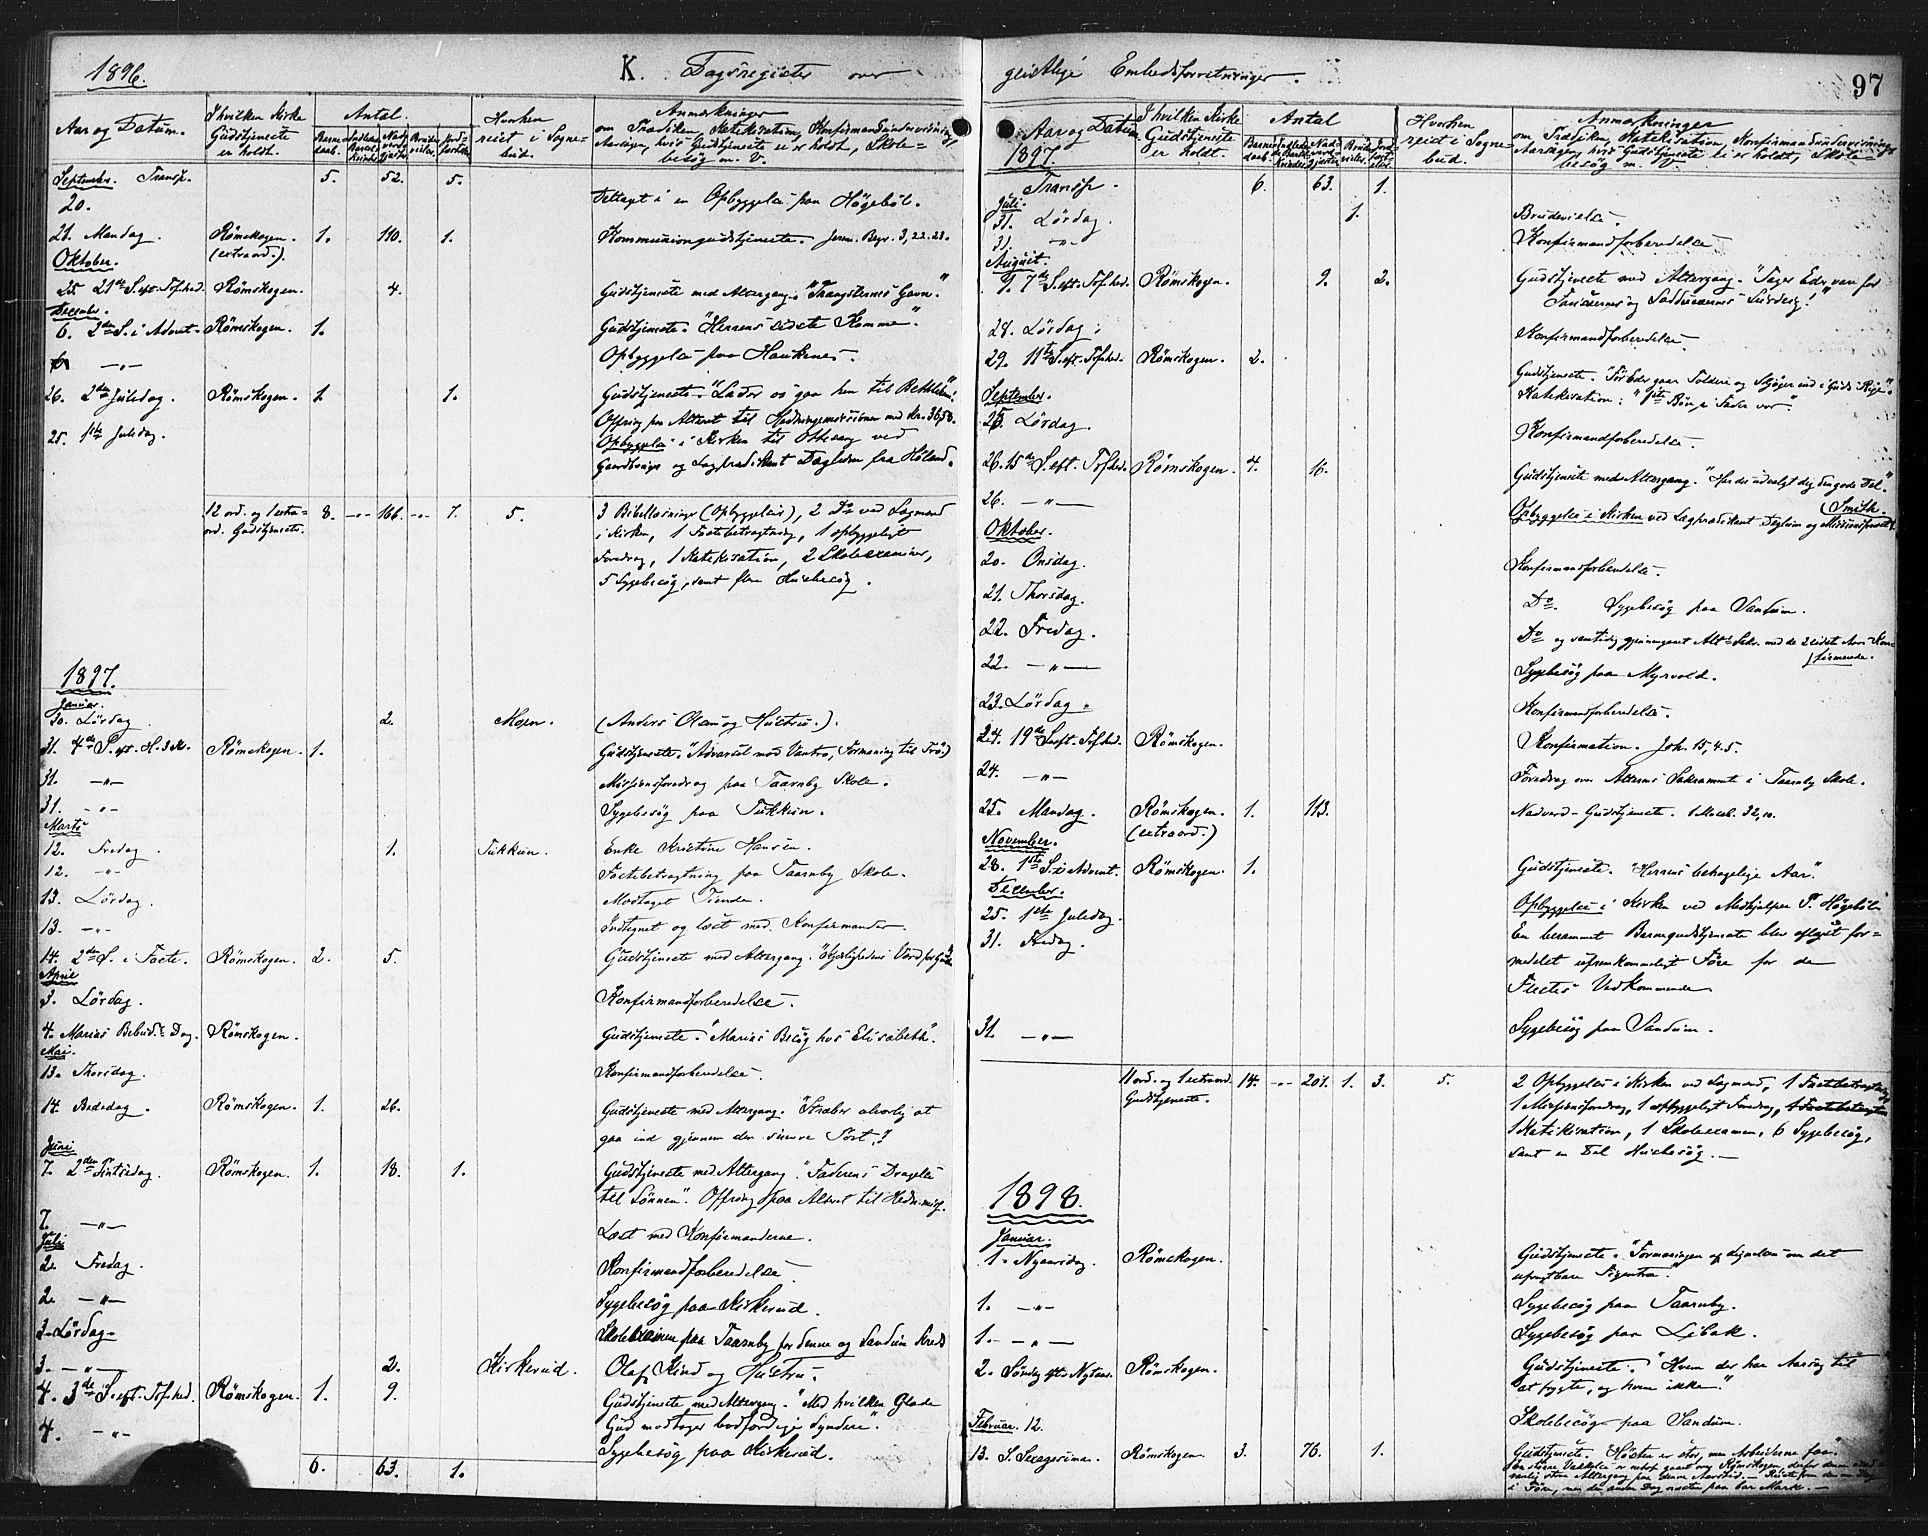 1896.
K. Dagsregister over
Aar og Datum.
I hvilken Kirke Gudstjeneste er holdt.
Antal.
Barne daab.
Brude vielser.
Hvorhen reist i Sognebud.
Anmærkninger
om Prædiken, Katekisation, Konfirmandundervisning,
Aarsagen, hvis Gudstjeneste ei er holdt, Skole-
besøg m. v.
September. Transp. 5. 52. 5.
20. Deltaget i en Opbyggelse paa Høgebøl.
21. Mandag. Rømskogen. (extraord.). 1. 110. 1. Kommuniongudstjeneste. Jerem. Begr. 3, 22. 23.
Oktober.
25. 21de S. eft. Trefhed. Rømskogen. 4. Gudstjeneste med Altergang. "Trængslernes Gavn."
December.
6. 2den S. i Advent. Rømskogen. 1. Gudstjeneste. "Herrens sidste Komme".
6. —"— Opbyggelse paa Haukenes.
26. 2den Juledag. Rømskogen. 1. 1. Gudstjeneste. "Lader os gaa hen til Bethlehem."
Offring paa Alteret til Hedningemissionen med Kr. 36,58.
25. 1ste Juledag. Opbyggelse i Kirken til Ottesang ved
Gaardbruger og Lægprædikant Dagleden fra Høland.
12 ord. og 1 extra- 8. -"- 166. -"- 7. 5. 3 Bibellæsninger (Opbyggelser), 2 Do ved Lægmænd
ord. Gudstjeneste. i Kirken, 1 Fastebetragtning, 1 opbyggeligt
Foredrag, 1 Katekisation, 2 Skoleexaminer,
5 Sygebesøg, samt flere Husbesøg.
1897.
Januar.
30. Lørdag. 2. Moen. (Anders Olsen og Hustru.).
31. 4de S. eft. H. 3 K. Rømskogen. 1. Gudstjeneste. "Advarsel mod Vantro, Formaning til Tro."
31. —"— Missionsforedrag paa Taarnby Skole.
31. -"- Sygebesøg paa Tukkun.
Marts
12. Fredag. 1. Tukkun. Enke Kristine Hansen.
12. -"- Fastebetragtning paa Taarnby Skole.
13. Lørdag. Modtaget Tiende.
13. -"- Indtegnet og læst med Konfirmander.
14. 2den S. i Faste. Rømskogen. 2. 5. Gudstjeneste med Altergang. "Kjærlighedens Værd for Gud."
April
3. Lørdag. Konfirmandforberedelse.
4. Marias Bebud. Dag. Rømskogen. Gudstjeneste. "Marias Besøg hos Elisabeth."
Mai.
13. Thorsdag. Konfirmandforberedelse.
14. Bededag. Rømskogen. 1. 26. Gudstjeneste med Altergang. "Stræber alvorlig at
gaa ind gjennem den snevre Port!"
Juni
7. 2den Pintsedag. Rømskogen. 1. 18. 1. Gudstjeneste med Altergang. "Faderens Dragelse
til Sønnen". Offring paa Alteret til Hedn. miss.
7. —"— Læst med Konfirmanderne.
Juli
2. Fredag. Konfirmandforberedelse
2. —"— Sygebesøg paa Kirkerud.
3. Lørdag. Skoleexamen paa Taarnby for denne og Sandum Kreds
3. —"— 2. Kirkerud. Olaf Kind og Hustru.
4. 3de S. eft. Trefhed. Rømskogen. 1. 9. Gudstjeneste med Altergang. "Med hvilken Glæde
Gud modtager bodfærdige Syndere".
4. -"- Sygebesøg paa Kirkerud.
6. 63. 1.
geistlige Embedsforretninger.
97
Aar og Datum
1897.
I hvilken Kirke Gudstjeneste er holdt.
Antal
Hvorhen reist i Sognebud.
Anmærkninger
om Prædiken, Katekisation, Konfirmandundervisning,
Aarsagen, hvis Gudstjeneste ei er holdt, Skole-
besøg m. v.
Transp. 6. 63. 1.
Juli.
31. Lørdag. 1. Brudevielse.
31. -"- Konfirmandforberedelse
August.
1. 7de S. eft. Trefhed. Rømskogen. 9. 2. Gudstjeneste med Altergang. "Tager Eder vare for
Farisæernes og Saddusæernes Surdeig!"
28. Lørdag. Konfirmandforberedelse.
29. 11te S. eft. Trefhed. Rømskogen. 2. Gudstjeneste. "Før Eder gaar Toldere og Skjøger ind i Guds Rige."
Katekisation: "1ste Bøn i Fader vor".
September.
25. Lørdag. Konfirmandforberedelse.
26. 15de S. eft. Trefhed. Rømskogen. 4. 16. Gudstjeneste med Altergang. "Har du udvalgt dig den gode Del."
26. —"— Opbyggelse i Kirken ved Lægprædikant Døglum og Missionsprædik. (Smith.
Oktober.
20. Onsdag. Konfirmandforberedelse.
21. Thorsdag. Do. Sygebesøg paa Sandum.
22. Fredag. Do og samtidig gjennemgaaet Alt. Sakr. med de sidst Aars Kon-
firmerede.
22. —"— Sygebesøg paa Myrvold.
23. Lørdag. Konfirmandforberedelse.
24. 19de S. eft. Trefhed. Rømskogen. Konfirmation. Joh. 15, 4. 5.
24. —"— Foredrag over Alterens Sakramente i Taarnby Skole.
25. Mandag. Rømskogen. (extraord.) 1. 113. Nadverd-Gudstjeneste. 1 Moseb. 32, 10.
November.
28. 1ste S. i Advent. Rømskogen. 1. Gudstjeneste. "Herrens behagelige Aar."
December.
25. 1ste Juledag. Opbyggelse i Kirken ved Medhjelper P. Høgebøl
31. Fredag. En berammet Barnegudstjeneste blev aflyst for-
medelst ufremkommeligt Føre for de
Flestes Vedkommende
31. —"— Sygebesøg paa Sandum.
11 ord. og 1 extraord. Gudstjeneste. 14. -"- 201. 1. 3. 5. 2 Opbyggelser i Kirken ved Lægmænd, 1 Fastebetragtning
1 Missionsforedrag, 1 opbyggeligt Foredrag, 1 Fastebetragtn
1 Katekisation, 1 Skoleexamen, 6 Sygebesøg,
samt en Del Husbesøg.
1898.
Januar.
1. Nyaarsdag. Rømskogen. Gudstjeneste. "Formaningen og Lignelsen om det
ufrugtbare Figentræ."
1. -"- Sygebesøg paa Taarnby.
1. -"- Sygebesøg paa Libak.
2. Søndag eft. Nytaar. Rømskogen. Gudstjeneste. "Hvem der har Aarsag til
at frygte, og hvem ikke."
Februar. 12. Skolebesøg paa Sandum.
13. S. Sexagesima. Rømskogen. 3. 76. 1. Gudstjeneste. "Høsten er stor, men Arbeiderne faa."